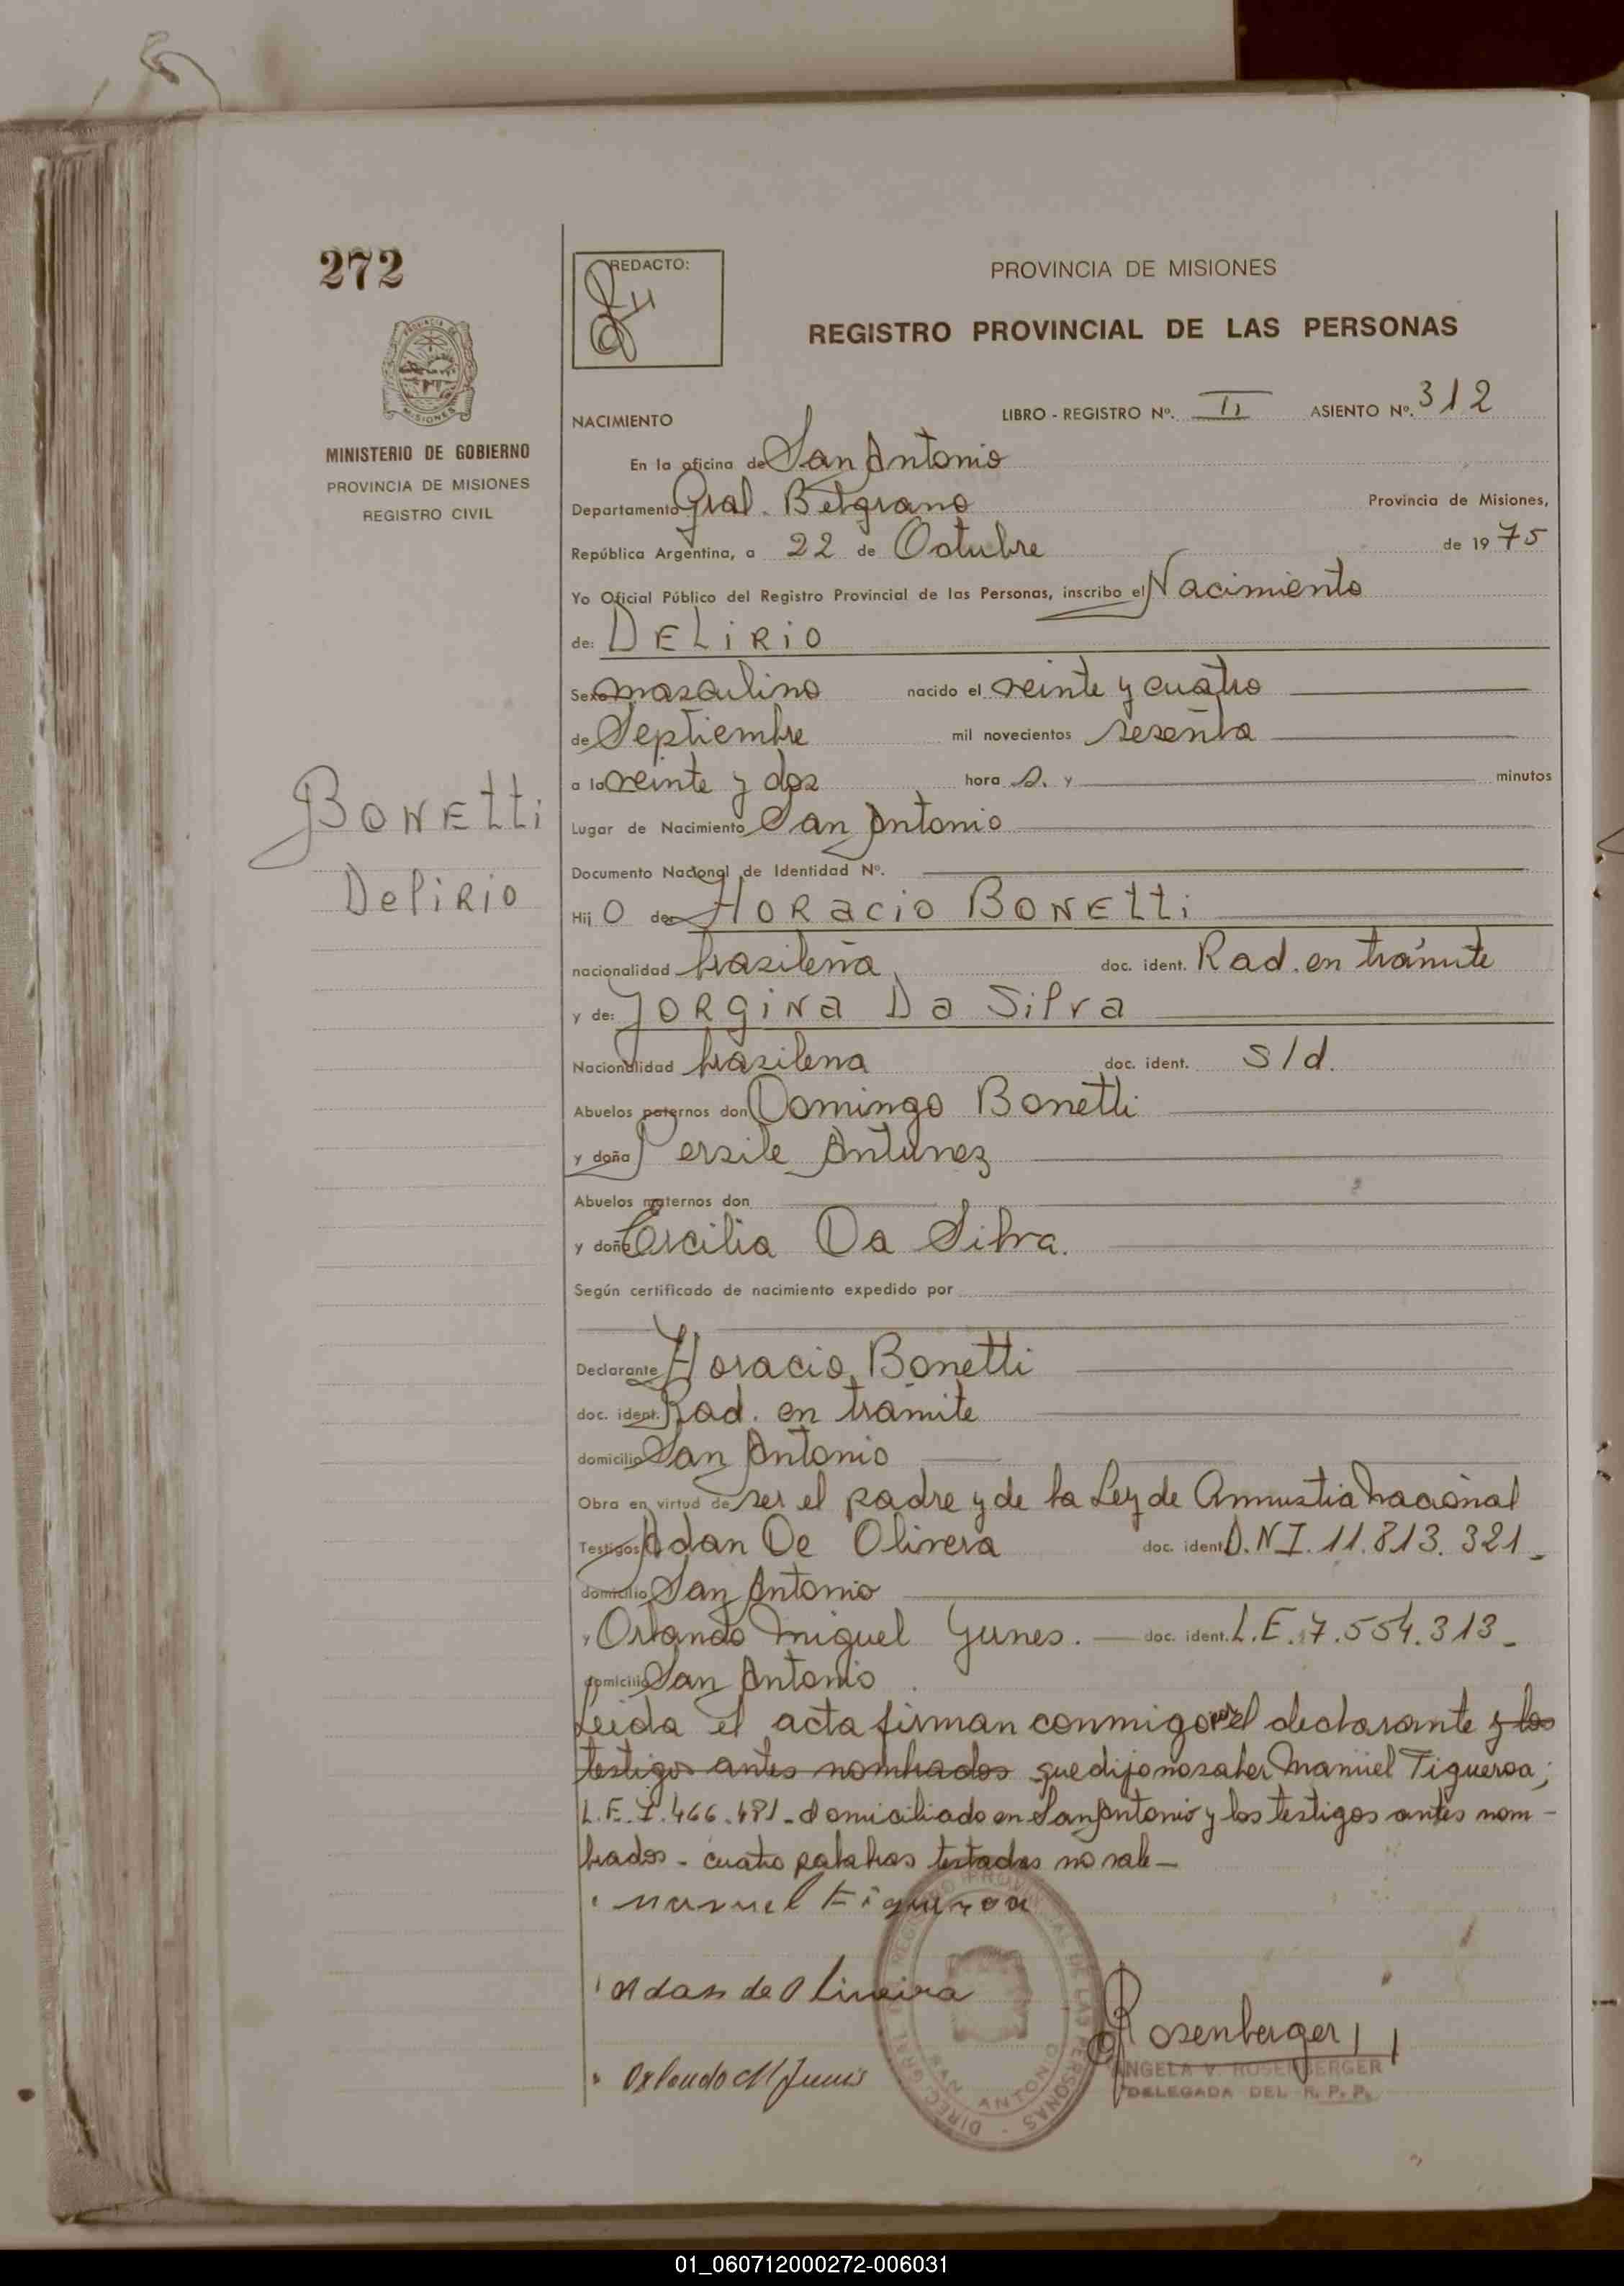 272
REDACTO:
PROVINCIA DE MISIONES
REGISTRO PROVINCIAL DE LAS PERSONAS
MINISTERIO DE GOBIERNO
PROVINCIA DE MISIONES
REGISTRO CIVIL
NACIMIENTO LIBRO - REGISTRO Nº. II ASIENTO Nº. 312
En la oficina de San Antonio
Departamento Gral. Belgrano Provincia de Misiones,
República Argentina, a 22 de Octubre de 1975
Yo Oficial Público del Registro Provincial de las Personas, inscribo el Nacimiento
de: DELIRIO
Sexo masculino nacido el veinte y cuatro
de Septiembre mil novecientos sesenta
a la veinte y dos hora s. y minutos
Lugar de Nacimiento San Antonio
Documento Nacional de Identidad Nº.
Bonetti
Delirio
Hij o de HORacio BONEtti
nacionalidad brasileña doc. ident. Rad. en trámite
y de: JORgiNa Da Silva
Nacionalidad brasilena doc. ident. s/d.
Abuelos paternos don Domingo Bonetti
y doña Persile Antunez
Abuelos maternos don
y doña Ercilia Da Silva.
Según certificado de nacimiento expedido por
Declarante Horacio Bonetti
doc. ident. Rad. en trámite
domicilio San Antonio
Obra en virtud de ser el padre y de la Ley de Amnustia nacional
Testigos Adan De Olivera doc. ident. D.N.I. 11.813.321.-
domicilio San Antonio
y Orlando Miguel Yunes. — doc. ident. L.E. 7.554.313.-
domicilio San Antonio
Leida el acta firman conmigo por el declarante y los
testigos antes nombrados que dijo no saber Manuel Figueroa;
L.E. 7.466.481 - domiciliado en San Antonio y los testigos antes nom-
brados - cuatro palabras testadas no vale -
Manuel Figueroa
Adan de Oliveira
Orlando M Junis
Rosenberger
ANGELA V. ROSENBERGER
DELEGADA DEL R. P. P.
SAN ANTONIO
01_060712000272-006031